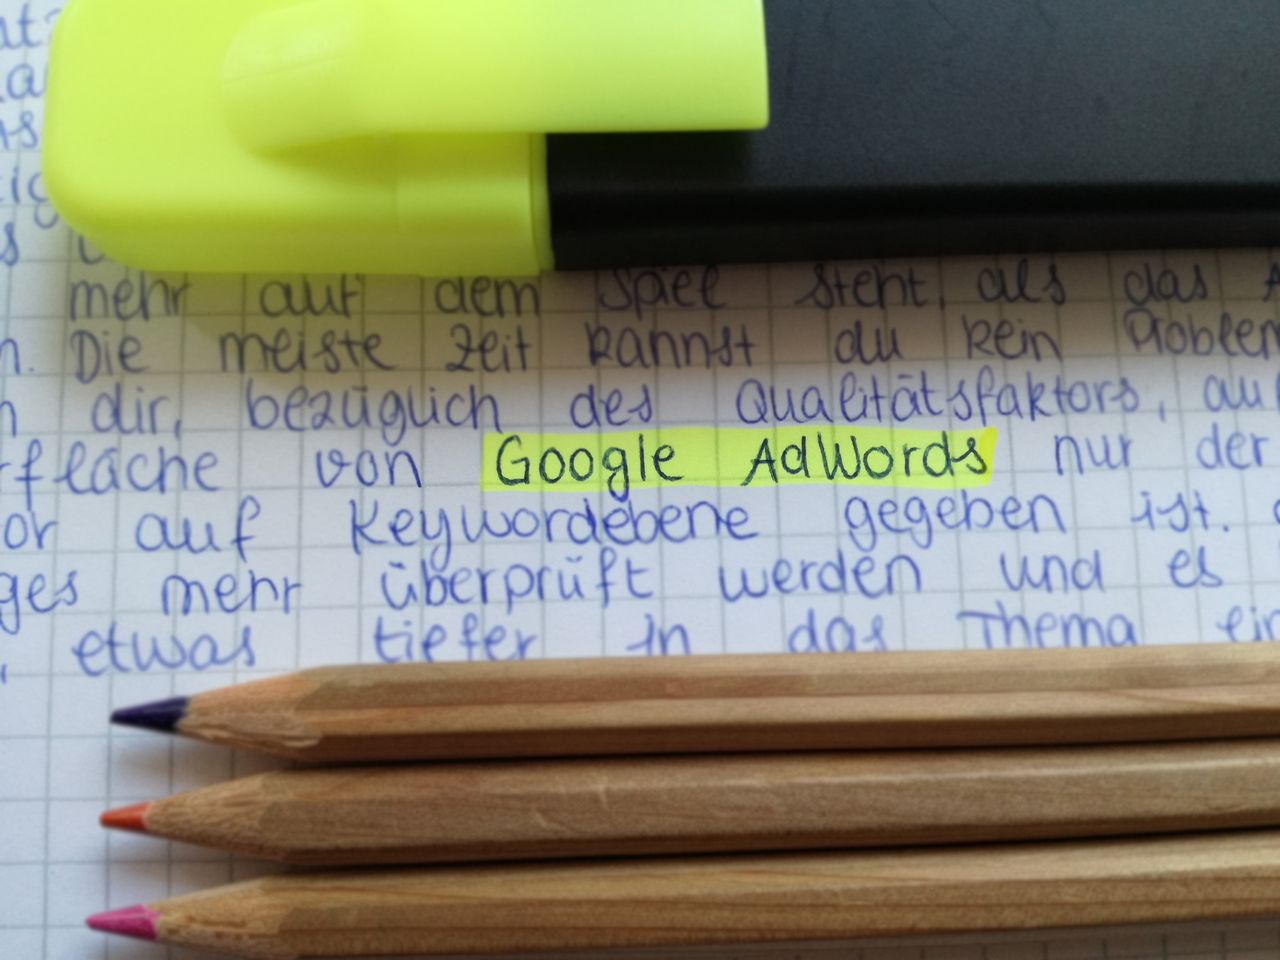 mehr auf dem Spiel steht, als das
Die meiste Zeit kannst du kein
dir, bezüglich des Qualitätsfaktors,
von Google AdWords nur der
auf Keywordebene gegeben ist.
mehr überprüft werden und es
etwas tiefer in das Thema